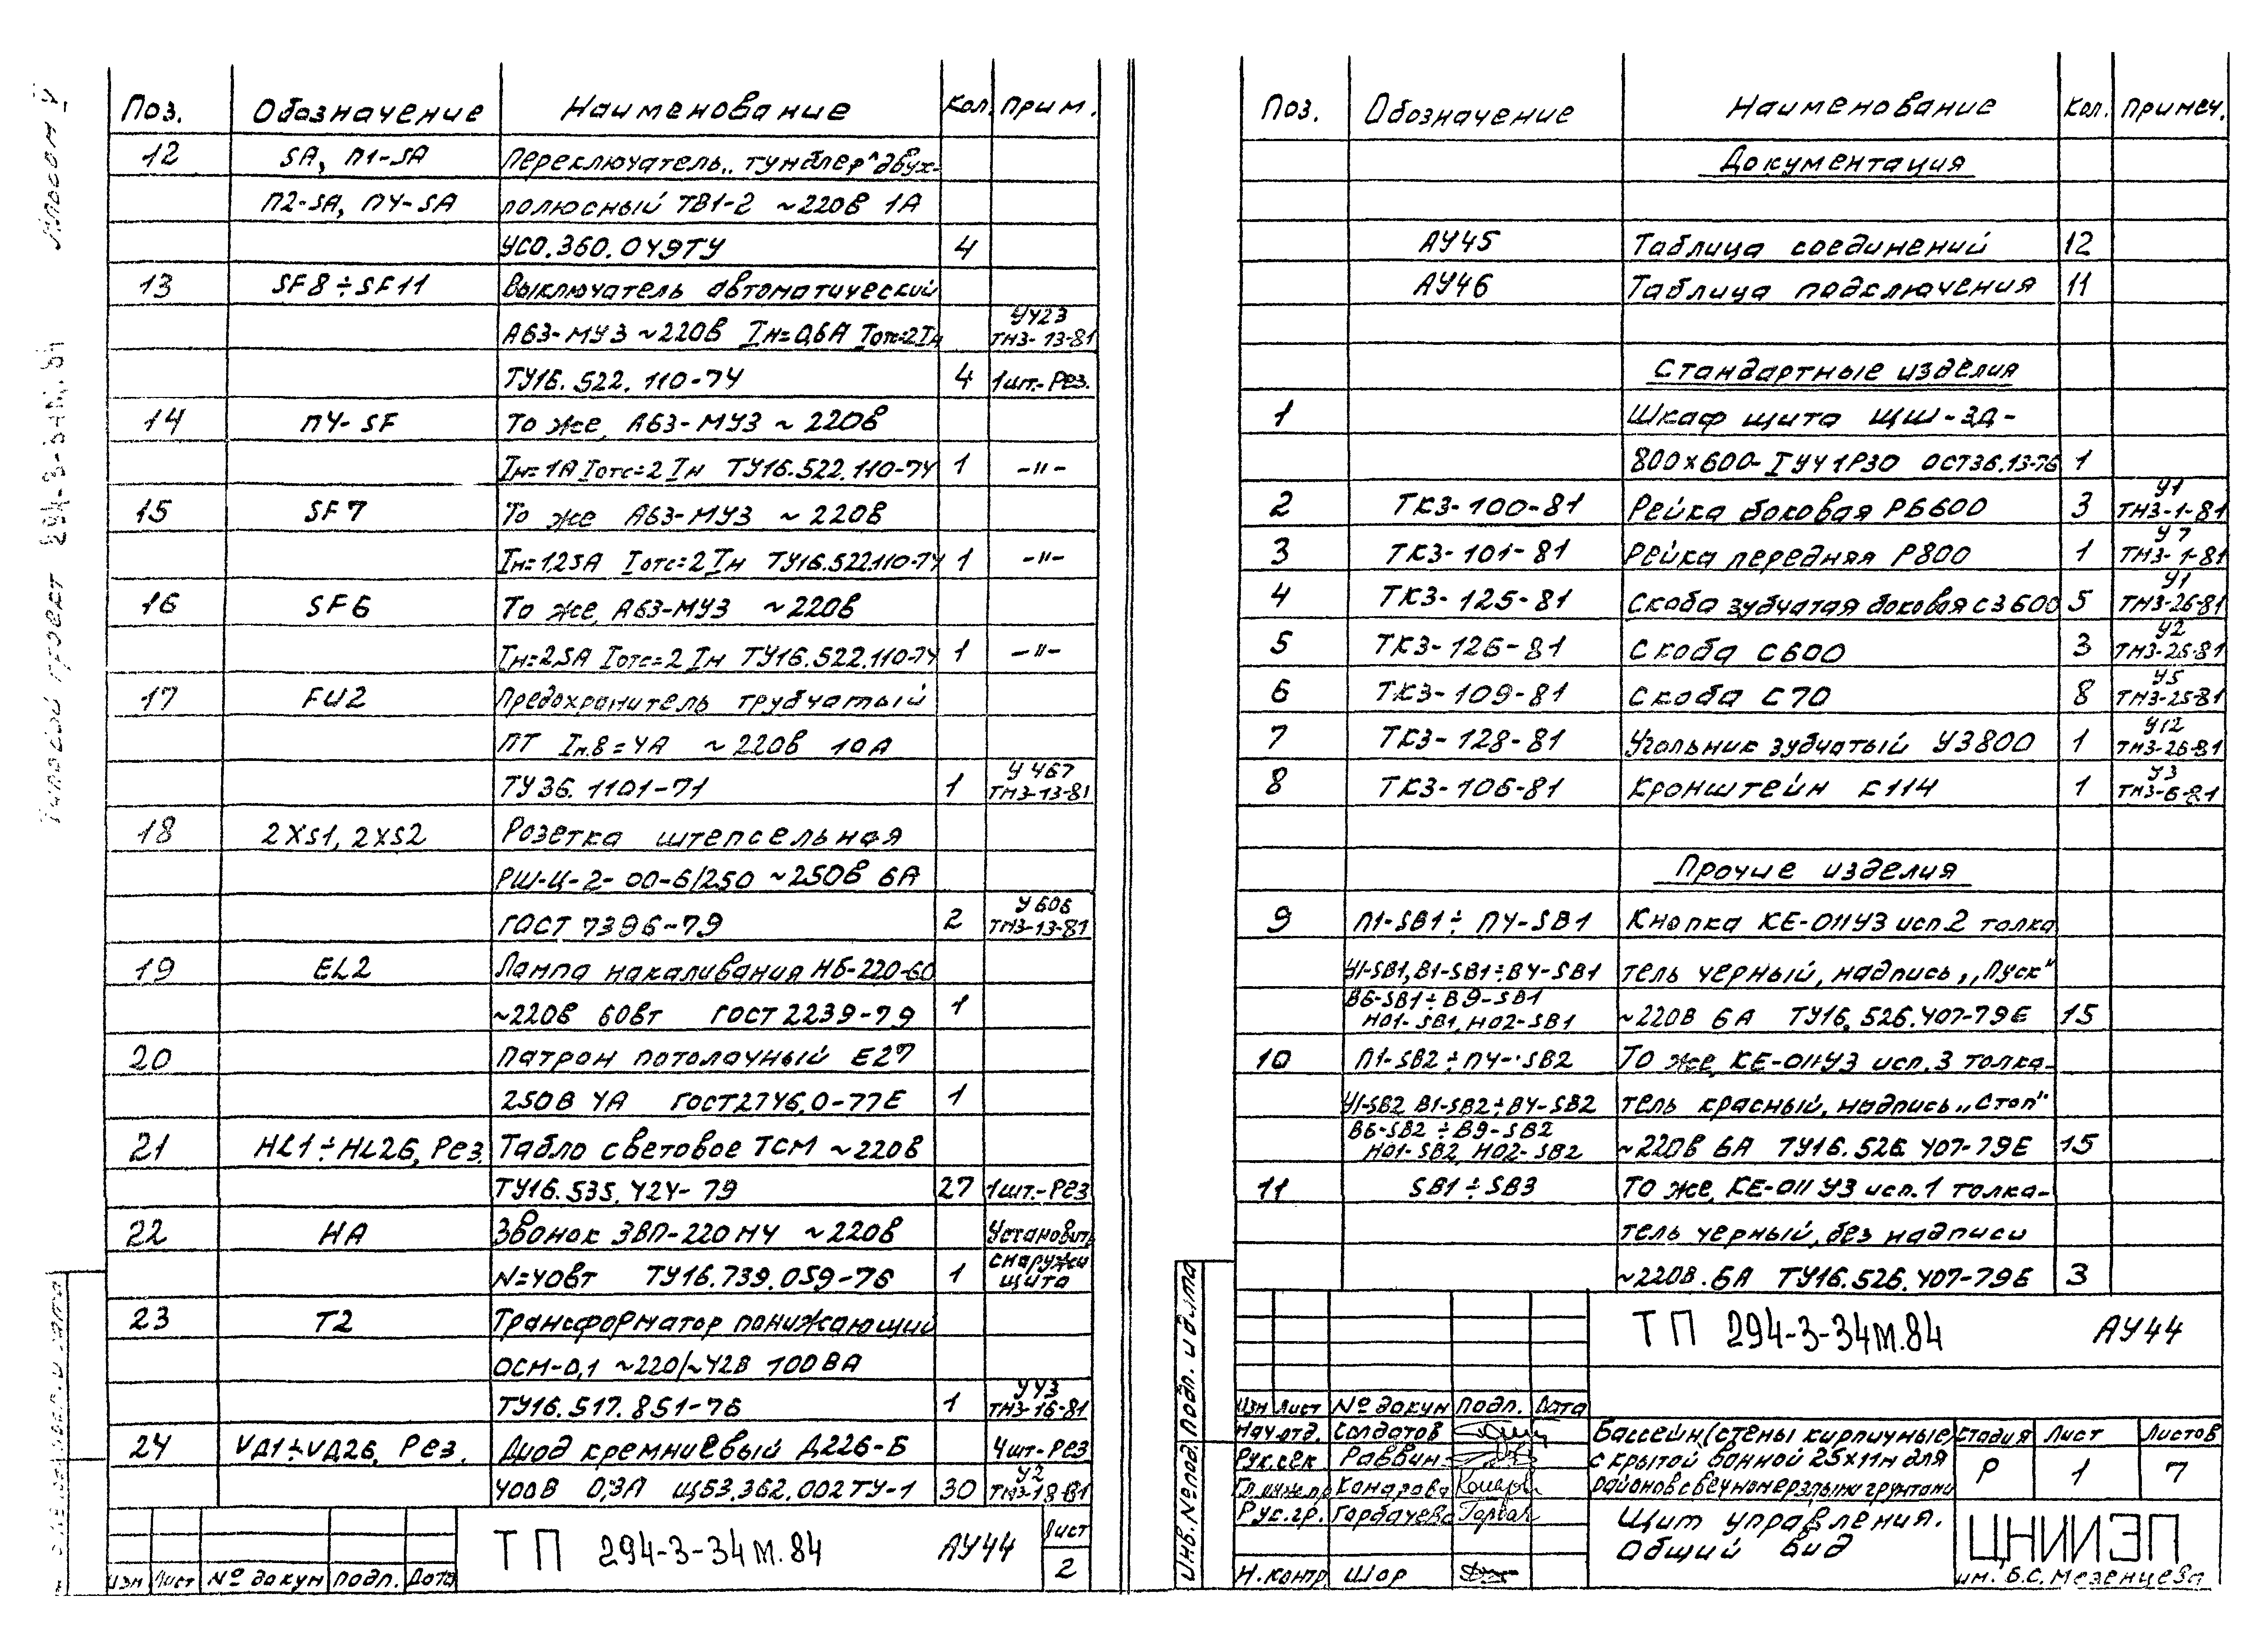 Альбом V
Типовой проект 294-3-34м.84
Поз. Обозначение Наименование Кол. Прим.
12 SA, П1-SA Переключатель „тумблер" двух-
П2-SA, П4-SA полюсный ТВ1-2 ~220В 1А
УСО.360.049ТУ 4
13 SF8÷SF11 Выключатель автоматический
А63-МУ3 ~220В Iн=0,6А Iотс=2Iн У423 ТМ3-13-81
ТУ16.522.110-74 4 1шт.-Рез.
14 П4-SF То же, А63-МУ3 ~220В
Iн=1А Iотс=2Iн ТУ16.522.110-74 1 -"-
15 SF7 То же А63-МУ3 ~220В
Iн=1,25А Iотс=2Iн ТУ16.522.110-74 1 -"-
16 SF6 То же, А63-МУ3 ~220В
Iн=2,5А Iотс=2Iн ТУ16.522.110-74 1 -"-
17 FU2 Предохранитель трубчатый
ПТ Iн.в=4А ~220В 10А
ТУ36.1101-71 1 У467 ТМ3-13-81
18 2XS1, 2XS2 Розетка штепсельная
РШ-Ц-2-00-6/250 ~250В 6А
ГОСТ 7396-79 2 У606 ТМ3-13-81
19 EL2 Лампа накаливания НБ-220-60
~220В 60Вт ГОСТ 2239-79 1
20 Патрон потолочный Е27
250В 4А ГОСТ2746.0-77Е 1
21 HL1÷HL26, Рез. Табло световое ТСМ ~220В
ТУ16.535.424-79 27 1шт.-Рез
22 НА Звонок ЗВП-220М4 ~220В Установить
N=40Вт ТУ16.739.059-76 1 снаружи щита
23 Т2 Трансформатор понижающий
ОСМ-0,1 ~220/~42В 100ВА
ТУ16.517.851-76 1 У43 ТМ3-16-81
24 VД1÷VД26, Рез. Диод кремниевый Д226-Б 4шт-Рез
400В 0,3А ЩБ3.362.002ТУ-1 30 У2 ТМ3-18-81
ТП 294-3-34м.84 АУ44 Лист 2
Изм Лист № докум подп. Дата
Поз. Обозначение Наименование Кол. Примеч.
Документация
АУ45 Таблица соединений 12
АУ46 Таблица подключения 11
Стандартные изделия
1 Шкаф щита ЩШ-3Д-
800х600-IУ41Р30 ОСТ36.13-76 1
2 ТК3-100-81 Рейка боковая РБ600 3 У1 ТМ3-1-81
3 ТК3-101-81 Рейка передняя Р800 1 У7 ТМ3-1-81
4 ТК3-125-81 Скоба зубчатая боковая СЗ600 5 У1 ТМ3-26-81
5 ТК3-126-81 Скоба С600 3 У2 ТМ3-26-81
6 ТК3-109-81 Скоба С70 8 У5 ТМ3-25-81
7 ТК3-128-81 Угольник зубчатый УЗ800 1 У12 ТМ3-26-81
8 ТК3-106-81 Кронштейн К114 1 У3 ТМ3-6-81
Прочие изделия
9 П1-SB1÷П4-SB1 Кнопка КЕ-011У3 исп.2 толка
У1-SB1, В1-SB1÷В4-SB1 тель черный, надпись „Пуск"
В6-SB1÷В9-SB1
Н01-SB1, Н02-SB1 ~220В 6А ТУ16.526.407-79Е 15
10 П1-SB2÷П4-SB2 То же, КЕ-011У3 исп.3 толка-
У1-SB2 В1-SB2÷В4-SB2 тель красный, надпись „Стоп"
В6-SB2÷В9-SB2
Н01-SB2, Н02-SB2 ~220В 6А ТУ16.526.407-79Е 15
11 SB1÷SB3 То же, КЕ-011У3 исп.1 толка-
тель черный, без надписи
~220В 6А ТУ16.526.407-79Е 3
ТП 294-3-34м.84 АУ44
Изм Лист № докум подп. Дата
Нач.отд. Солдатов
Рук.сек Раввин
Гл.инж.пр Комарова
Рук.гр. Горбачева
Н.контр Шор
Бассейн (стены кирпичные)
с крытой ванной 25х11м для
районов с вечномерзлыми грунтами
Стадия Лист Листов
Р 1 7
Щит управления.
Общий вид
ЦНИИЭП
им. Б.С. Мезенцева
Инв.№подл. Подп. и дата